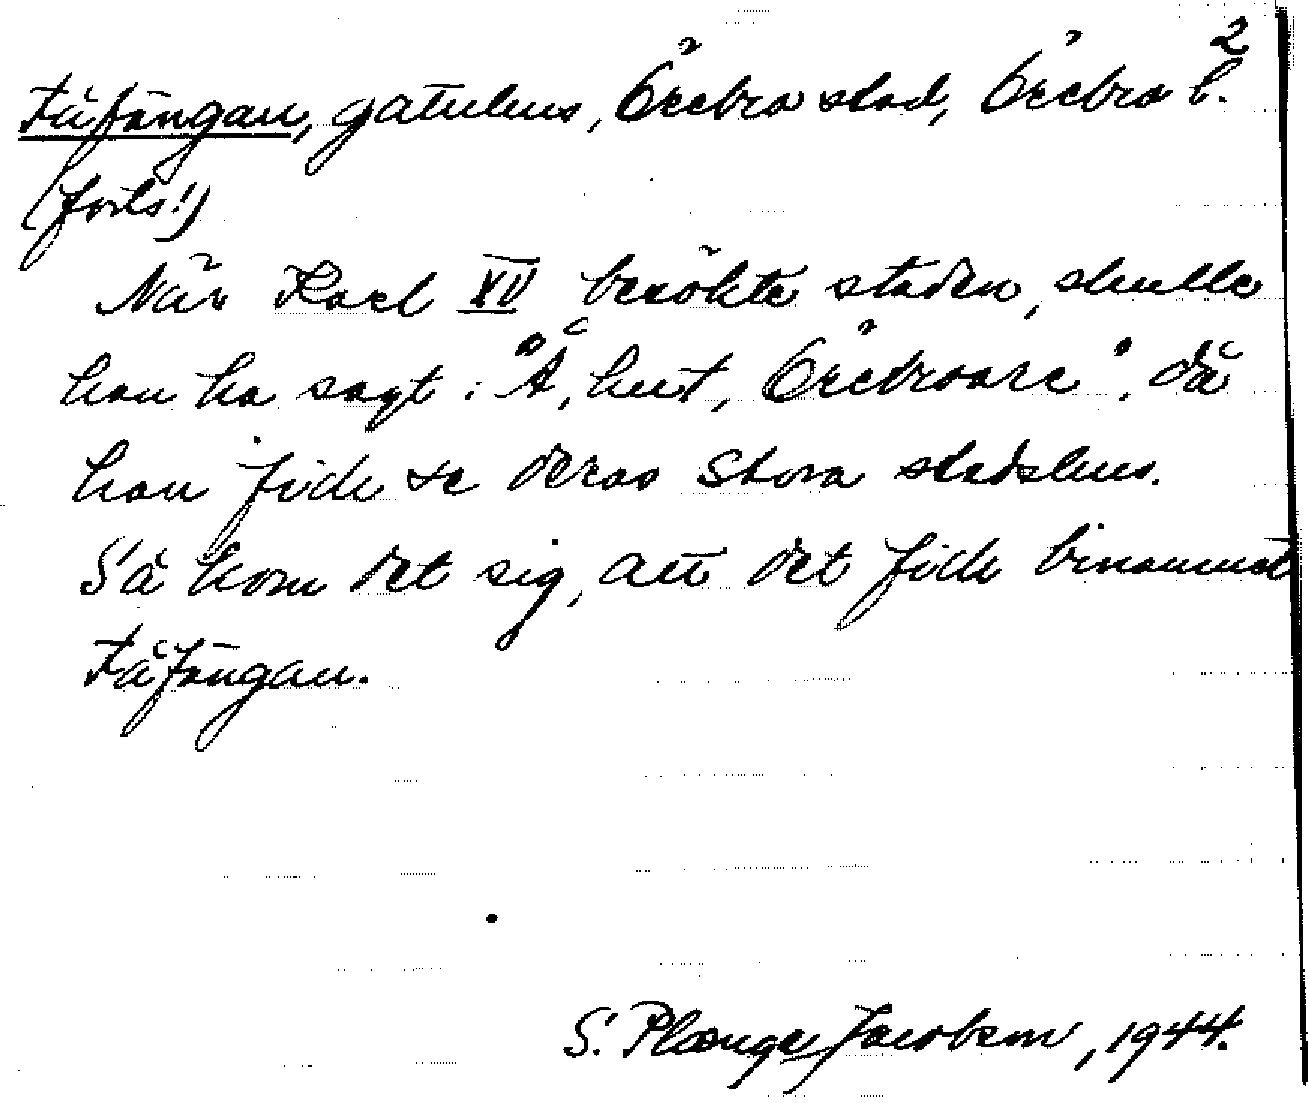 2
Fåfängan, gatuhus, Örebro stad, Örebro l.
(forts!)
När Karl XV besökte staden, skulle
han ha sagt: "Å, hut, Örebroare", då
han fick se deras stora stadshus.
Så kom det sig, att det fick binamnet
Fåfängan.
S. Plænge Jacobson, 1944.